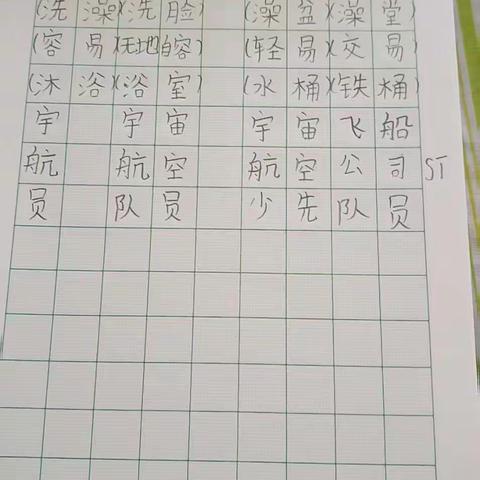 (洗澡)(洗脸) (澡盆)(澡堂)
(容易)(无地自容) (轻易)(交易)
(沐浴)(浴室) (水桶)(铁桶)
宇 宇宙 宇宙飞船
航 航空 航空公司 ST
员 队员 少先队员